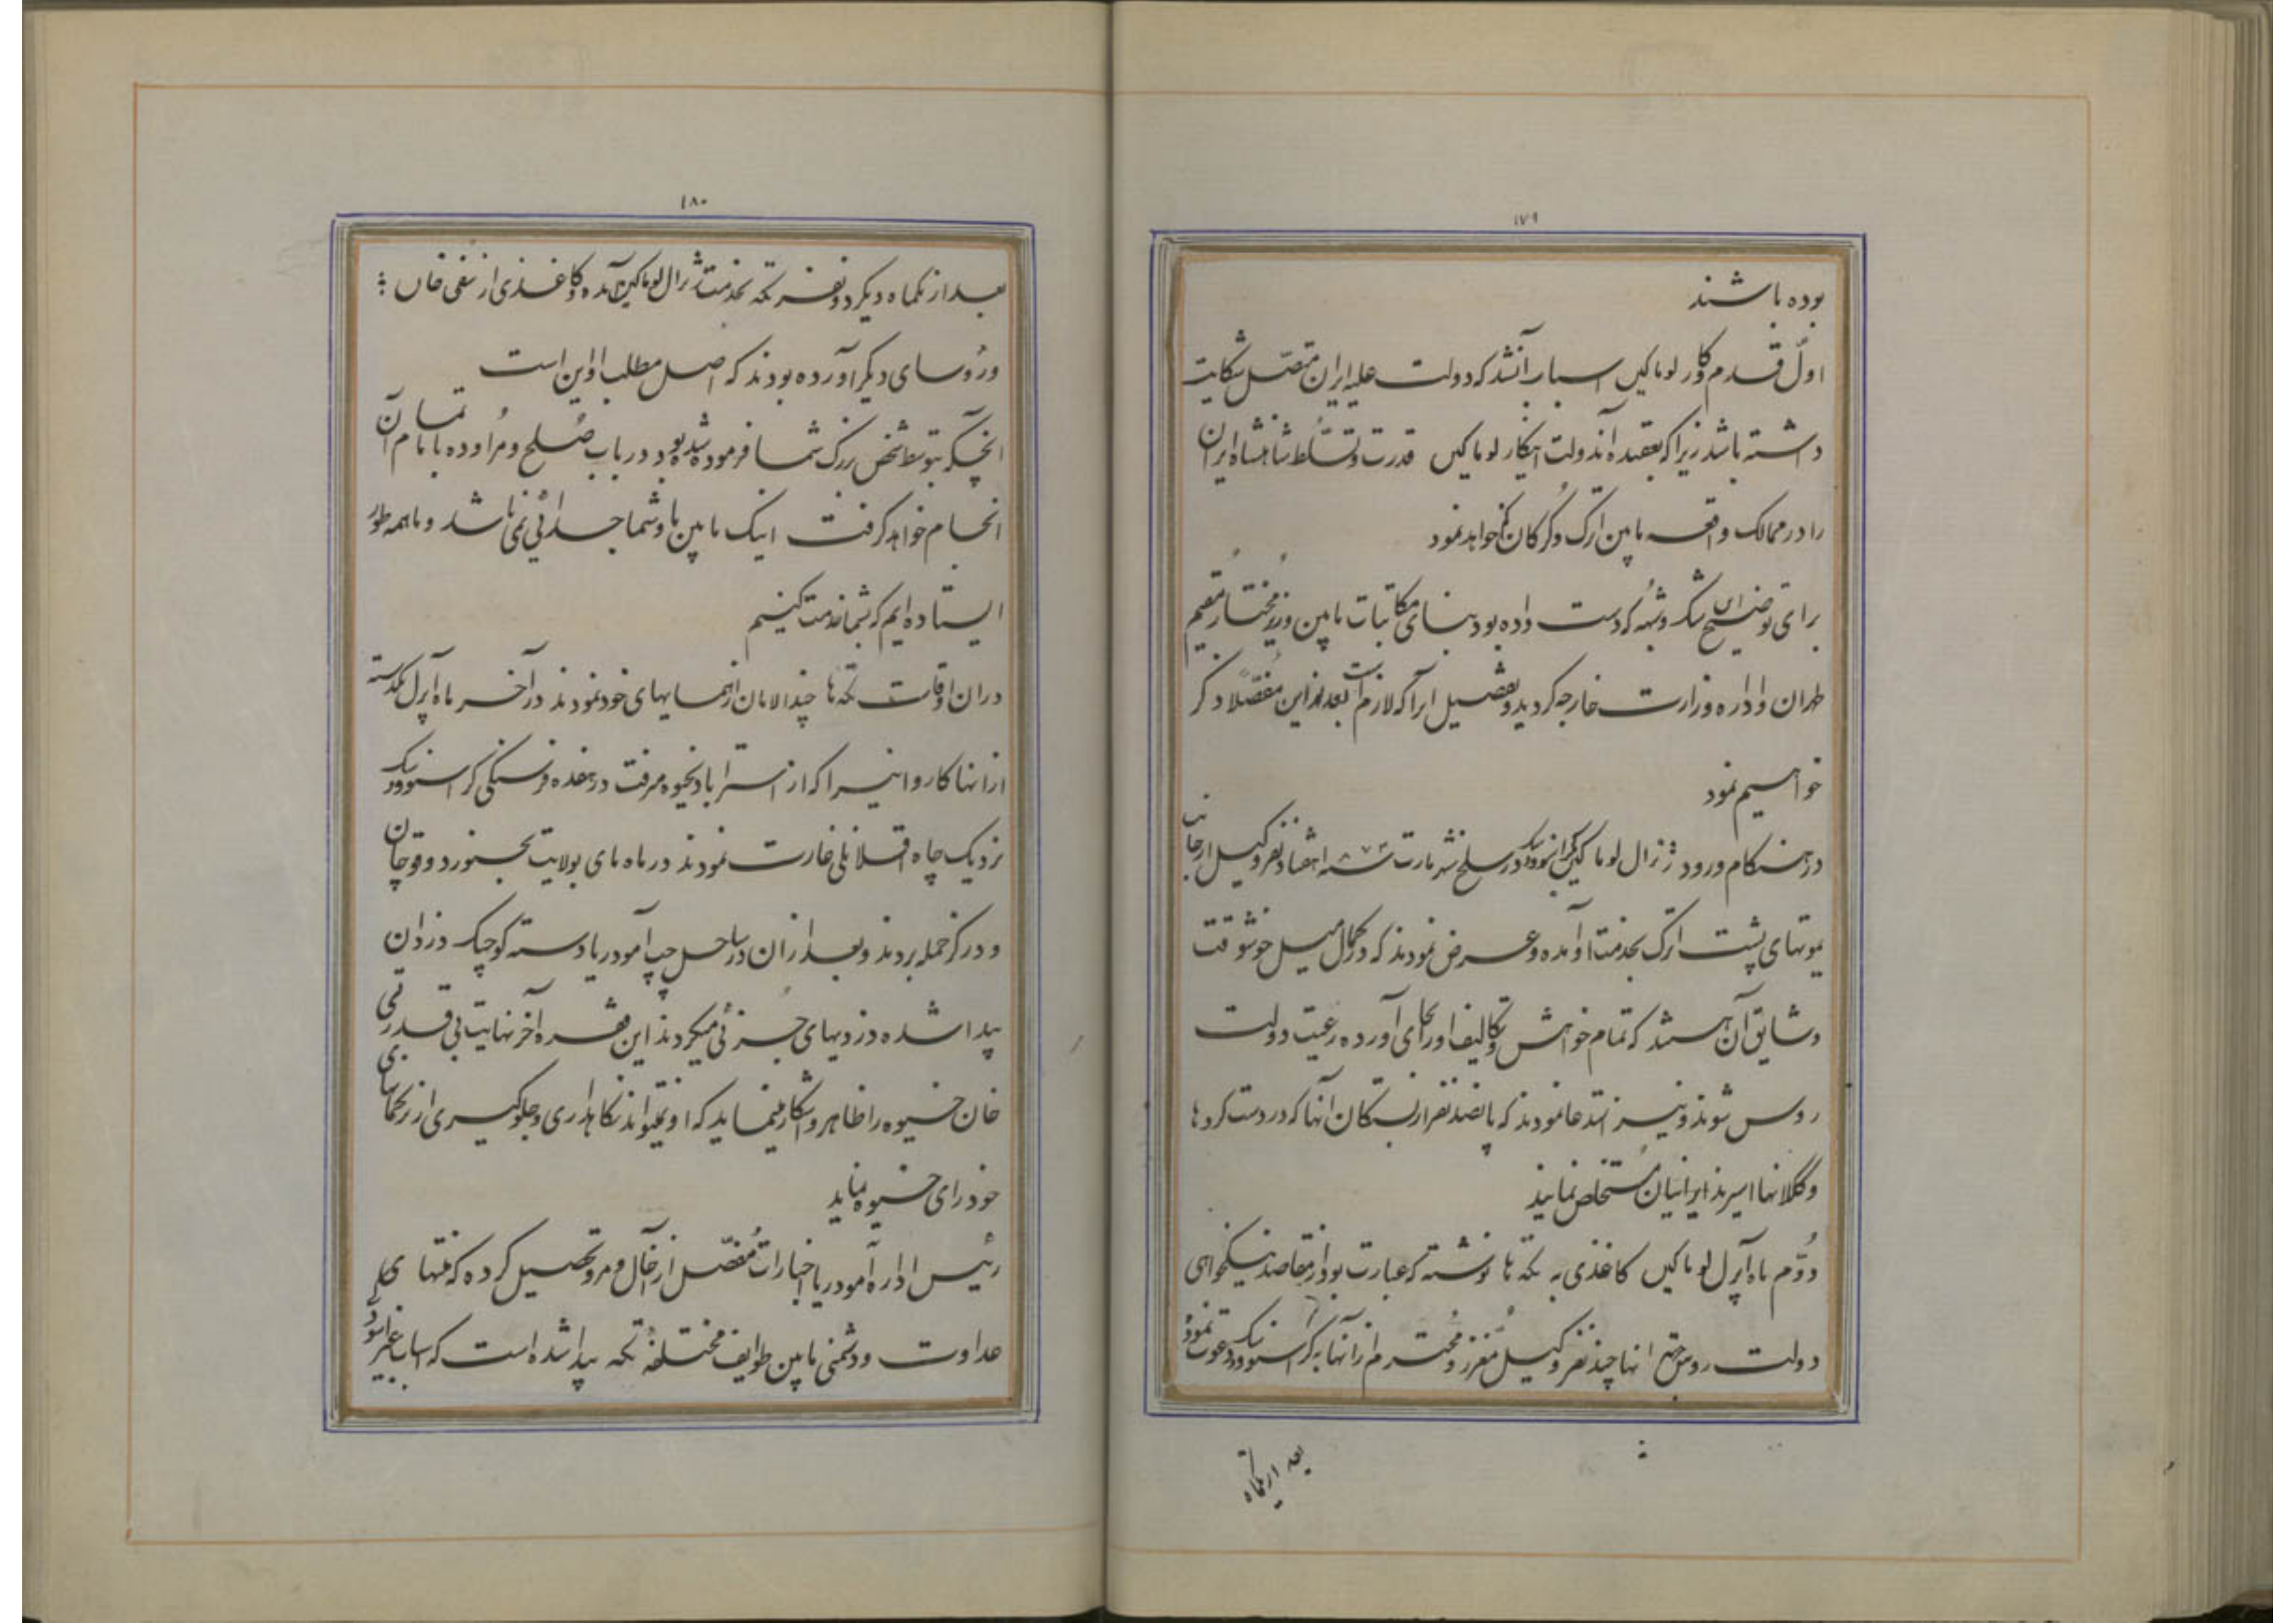 ۱۷۹
بوده باشند
اوّل قدم و کار لوماکین اسباب آن شد که دولت علیه ایران متصل شکایت
داشته باشد زیرا که بعقیده آندولت اینکار لوماکین قدرت و تسلّط شاهنشاه ایران
را در ممالک واقعه مابین اترک و گرگان کم خواهد نمود
برای توضیح این شک و شبهه که دست داده بود بنای مکاتبات مابین وزیر مختار مقیم
طهران و اداره وزارت خارجه گردید و تفصیل انرا که لازم است بعد از این مفصّلا ذکر
خواهیم نمود
در هنگام ورود ژنرال لوماکین بکراسنوودیک در سلخ شهر مارت سنه ۱۸۷۲ هفتاد نفر وکیل از جانب
یموتهای پشت اترک بخدمت او آمده و عرض نمودند که در کمال میل خوشوقت
و شایق آن هستند که تمام خواهش و تکالیف او را بجای آورده رعیت دولت
روس شوند و نیز استدعا نمودند که پانصد نفر از بستکان انها که در دست کردها
و کلانها اسیرند ایرانیان مستخلص نمایند
دوّم ماه آپرل لوماکین کاغذی به تکه ها نوشته که عبارت بود از مقاصد نیکخواهی
دولت روس بحق انها چند نفر وکیل معزز و محترم از آنها به کراسنوودیک دعوت نمود
بعد از یکماه
۱۸۰
بعد از یکماه دیگر دو نفر تکه بخدمت ژنرال لوماکین آمده و کاغذی از صفی خان
و رؤسای دیگر آورده بودند که اصل مطلب او این است
انچکه بتوسط شخص بزرک شما فرموده شده بود در باب صلح و مراوده با ما تمام آن
انجام خواهد گرفت اینک مابین ما و شما جدائی نمی باشد و ما همه طور
ایستاده ایم که بشما خدمت کنیم
در ان اوقات تکه ها چند الامان از همسایهای خود نمودند در آخر ماه آپرل یکدسته
از انها کاروانیرا که از استراباد بخیوه میرفت در هفده فرسنکی کراسنوودیک
نزدیک چاه نمودند در ماه مای بولایت بجنورد و قوچان
و درگز حمله بردند و بعد از ان در ساحل چپ آمودریا دسته کوچک دزدان
پیدا شده دزدیهای جزئی میکردند این فقره آخر نهایت بی قدرتی
خان خیوه را ظاهر و آشکار مینماید که او نمیتواند نکاهداری و جلوگیری از ترکمانهای
خود رای خیوه نماید
رئیس اداره آمودریا اخبارات مفصّل از آخال و مرو تحصیل کرده که منتهای
عداوت و دشمنی مابین طوایف مختلفهٔ تکه پیدا شده است که اسباب